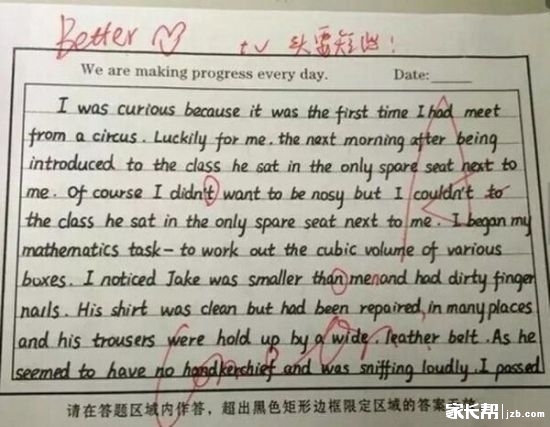 Better t v 头要短些!
We are making progress every day. Date:
I was curious because it was the first time I had meet
from a circus. Luckily for me, the next morning after being
introduced to the class he sat in the only spare seat next to
me. Of course I didn't want to be nosy but I couldn't to
the class he sat in the only spare seat next to me. I began my
mathematics task - to work out the cubic volume of various
boxes. I noticed Jake was smaller than men and had dirty finger
nails. His shirt was clean but had been repaired, in many places
and his trousers were hold up by a wide, leather belt. As he
seemed to have no handkerchief and was sniffing loudly. I passed
请在答题区域内作答,超出黑色矩形边框限定区域的答案无效
家长帮 jzb.com